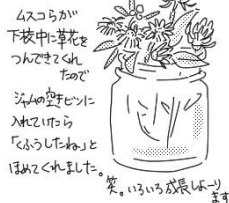 ムスコらが
下校中に草花を
つんできてくれ
たので
ジャムの空きビンに
入れていたら
「くふうしたね」と
ほめてくれました。
笑。いろいろ成長しよーり
ます